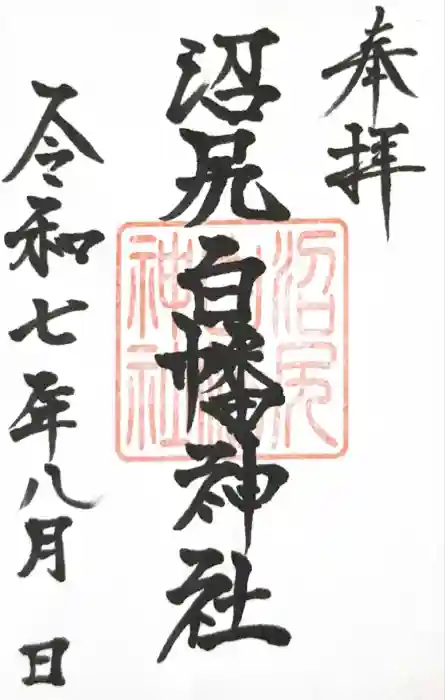 奉拝
沼尻白幡神社
令和七年八月 日
沼尻
白幡
神社